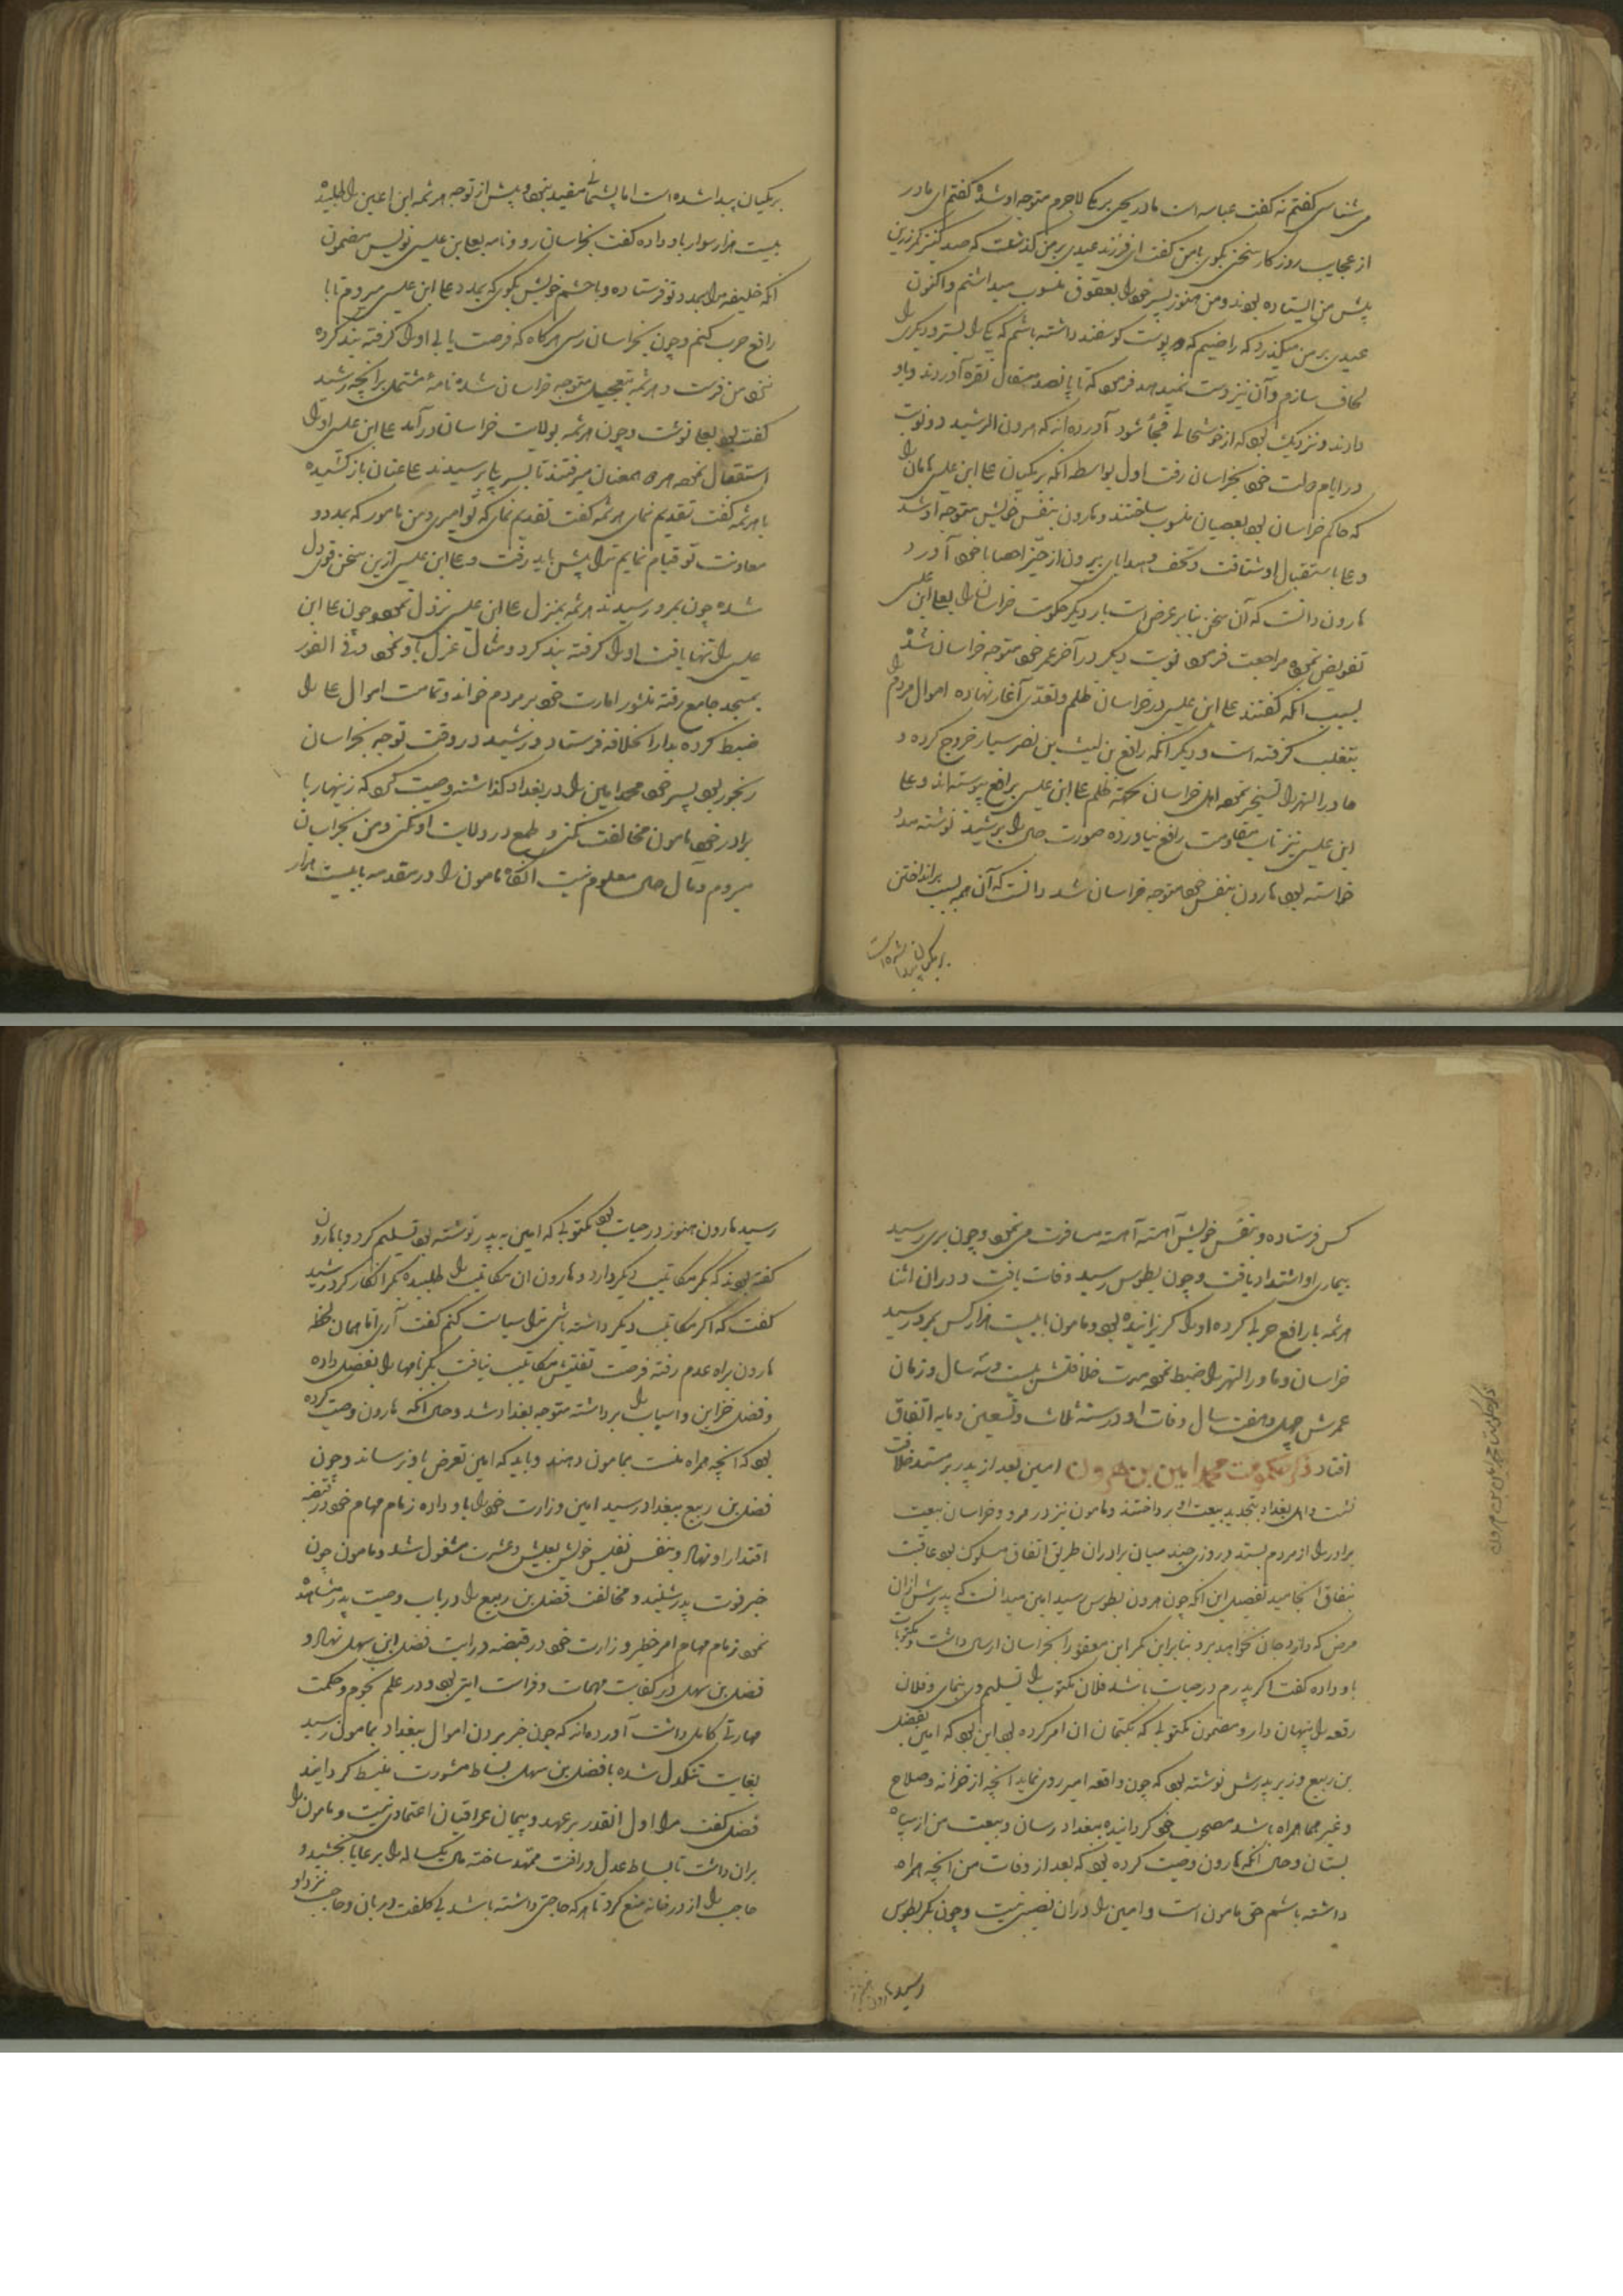 می شناسی گفتم نه گفت عباسه است مادر یحیی برمکی لاجرم متوجه او شده گفتم ای مادر
از عجایب روزکار سخنی بکوی با من گفت ای فرزند عیدی بر من کذشت که صد کنیز کمر زرین
پیش من ایستاده بودند و من هنوز پسر خود را بعقوق منسوب میداشتم و اکنون
عیدی بر من میکذرد که راضیم که دو پوست کوسفند داشته باشم که یکی را بستر و دیکری را
لحاف سازم و آن نیز دست نمیدهد فرمود که تا پانصد مثقال نقره آوردند و باو
دادند و نزدیک بود که از خوشحالی فجأ شود آورده اند که هرون الرشید دو نوبت
در ایام دولت خود بخراسان رفت اول بواسطه آنکه برمکیان علی ابن عیسی ماهان را
که حاکم خراسان بود بعصیان منسوب ساختند و هارون بنفس خویش متوجه او شد
و علی باستقبال او شتافت و تحف و هدایای بیرون از حیّز احصا با خود آورد
هارون دانست که آن سخن بنابر غرض است بار دیکر حکومت خراسان را بعلی ابن عیسی
تفویض نموده مراجعت فرمود نوبت دیکر در آخر عمر خود متوجه خراسان شد
بسبب آنکه گفتند علی ابن عیسی در خراسان ظلم و تعدّی آغاز نهاده اموال مردم را
بتغلب کرفته است و دیکر آنکه رافع بن لیث بن نصر سیار خروج کرده و
ماورالنهر را تسخیر نموده اهل خراسان بجهة ظلم علی ابن عیسی برافع پیوسته اند و علی
ابن عیسی نیز تاب مقاومت رافع نیاورده صورت حال را برشید نوشته مدد
خواسته بود هارون بنفس خود متوجه خراسان شد دانست که آن همه بسبب برانداختن
برمکیان پیدا شده است
برمکیان پیدا شده است اما پشیمانی مفید نبود و پیش از توجه هرثمه ابن اعین را طلبیده
بیست هزار سوار باو داده گفت بخراسان رو و نامه بعلی بن عیسی نویس مضمون
آنکه خلیفه مرا بمدد تو فرستاده و با حشم خویش بکوی که بمدد علی ابن عیسی میروم تا با
رافع حرب کنم و چون بخراسان رسی هرکاه که فرصت یابی او را کرفته بند کرده
نزد من فرست و هرثمه بتعجیل متوجه خراسان شده نامهٔ مشتمل بر آنچه رشید
کفته بود بعلی نوشت و چون هرثمه بولایت خراسان درآمد علی ابن عیسی او را
استقبال نموده همراه همعنان میرفتند تا بسر پلی رسیدند علی عنان باز کشیده
با هرثمه کفت تقدیم نمای هرثمه کفت تقدیم نمای که تو امیری و من مامور که بمدد و
معاونت تو قیام نمایم ترا پیش باید رفت و علی ابن عیسی ازین سخن قوی دل
شده چون بمرو رسیدند هرثمه بمنزل علی ابن عیسی نزول نمود و چون علی ابن
عیسی را تنها یافت او را کرفته بند کرد و مثال عزل باو نمود و فی الفور
بمسجد جامع رفته منشور امارت خود بر مردم خواند و تمامت اموال علی را
ضبط کرده بدار الخلافه فرستاد و رشید در وقت توجه بخراسان
رنجور بود پسر خود محمد امین را در بغداد کذاشته وصیت کرد که زینهار با
برادر خود مامون مخالفت نکنی و طمع در ولایت او نکنی و من بخراسان
میروم و مآل حال معلوم نیست آنکاه مامون را در مقدمه با بیست هزار
کس فرستاده و بنفس خویش آهسته آهسته مسافرت می نمود و چون بری رسید
بیماری او اشتداد یافت و چون بطوس رسید وفات یافت و در آن اثنا
هرثمه با رافع حربی کرده او را کریزانیده بود و مامون با بیست هزار کس بمرو رسید
خراسان و ماورالنهر را ضبط نموده مدت خلافتش بیست و سه سال و زمان
عمرش چهل و هفت سال وفات او در سنهٔ ثلاث و تسعین و مایه اتفاق
افتاد ذکر حکومت محمد امین بن هرون امین بعد از پدر بر مسند خلافت
نشست و اهل بغداد بتجدید بیعت او پرداختند و مامون نیز در مرو و خراسان بیعت
برادر را از مردم بستد و روزی چند میان برادران طریق اتفاق مسلوک بود عاقبت
بنفاق انجامید تفصیل این آنکه چون هرون بطوس رسید امین میدانست که پدرش از ان
مرض که دارد جان نخواهد برد بنابراین بکر ابن معتمر را بخراسان ارسال داشت و مکتوبات
باو داده کفت اکر پدرم در حیات باشد فلان مکتوب را تسلیم وی نمای و فلان
رقعه را پنهان دار و مضمون مکتوبی که بکتمان آن امر کرده بود این بود که امین بفضل
بن ربیع وزیر پدرش نوشته بود که چون واقعه امیر روی نماید آنچه از خزانه و سلاح
و غیر هما همراه باشد مصحوب خود کردانیده ببغداد رسان و بیعت من از سپاه
بستان و حال آنکه هارون وصیت کرده بود که بعد از وفات من آنچه همراه
داشته باشم حق مامون است و امین را در ان نصیبی نیست و چون بکر بطوس
رسید هارون هنوز
ذکر حکومت محمد امین بن هرون
رسید هارون هنوز در حیات بود مکتوبی که امین به پدر نوشته بود تسلیم کرد و با هارون
کفته بودند که بکر مکاتیب دیکر دارد و هارون آن مکاتیب را طلبیده بکر انکار کرد رشید
کفت که اکر مکاتیب دیکر داشته باشی ترا سیاست کنم کفت آری اما همان لحظه
هارون براه عدم رفته فرصت تفتیش مکاتیب نیافت بکر نامها را بفضل داده
و فضل خزاین و اسباب را برداشته متوجه بغداد شد و حال آنکه هارون وصیت کرده
بود که آنچه همراه منست بمامون دهند و باید که امین تعرض باو نرساند و چون
فضل بن ربیع ببغداد رسید امین وزارت خود را باو داده زمام مهام خود در قبضه
اقتدار او نهاد و بنفس نفیس خویش بعیش و عشرت مشغول شد و مامون چون
خبر فوت پدر شنید و مخالفت فضل بن ربیع را در باب وصیت پدر مشاهده
نمود زمام مهام امر خطیر وزارت خود در قبضه درایت فضل ابن سهل نهاد و
فضل بن سهل در کفایت مهمات و فراست آیتی بود و در علم نجوم و حکمت
مهارتی کامل داشت آورده اند که چون خبر بردن اموال ببغداد بمامون رسید
بغایت تنکدل شده با فضل بن سهل بساط مشورت منبسط کردانید
فضل کفت مرا اول القدر بر عهد و پیمان عراقیان اعتمادی نیست و مامون را
بران داشت تا بساط عدل و رافت ممهّد ساخته مال یکساله را برعایا بخشید و
حاجب را از در خانه منع کرد تا هر که حاجتی داشته باشد بی کلفت دربان و حاجب نزد او